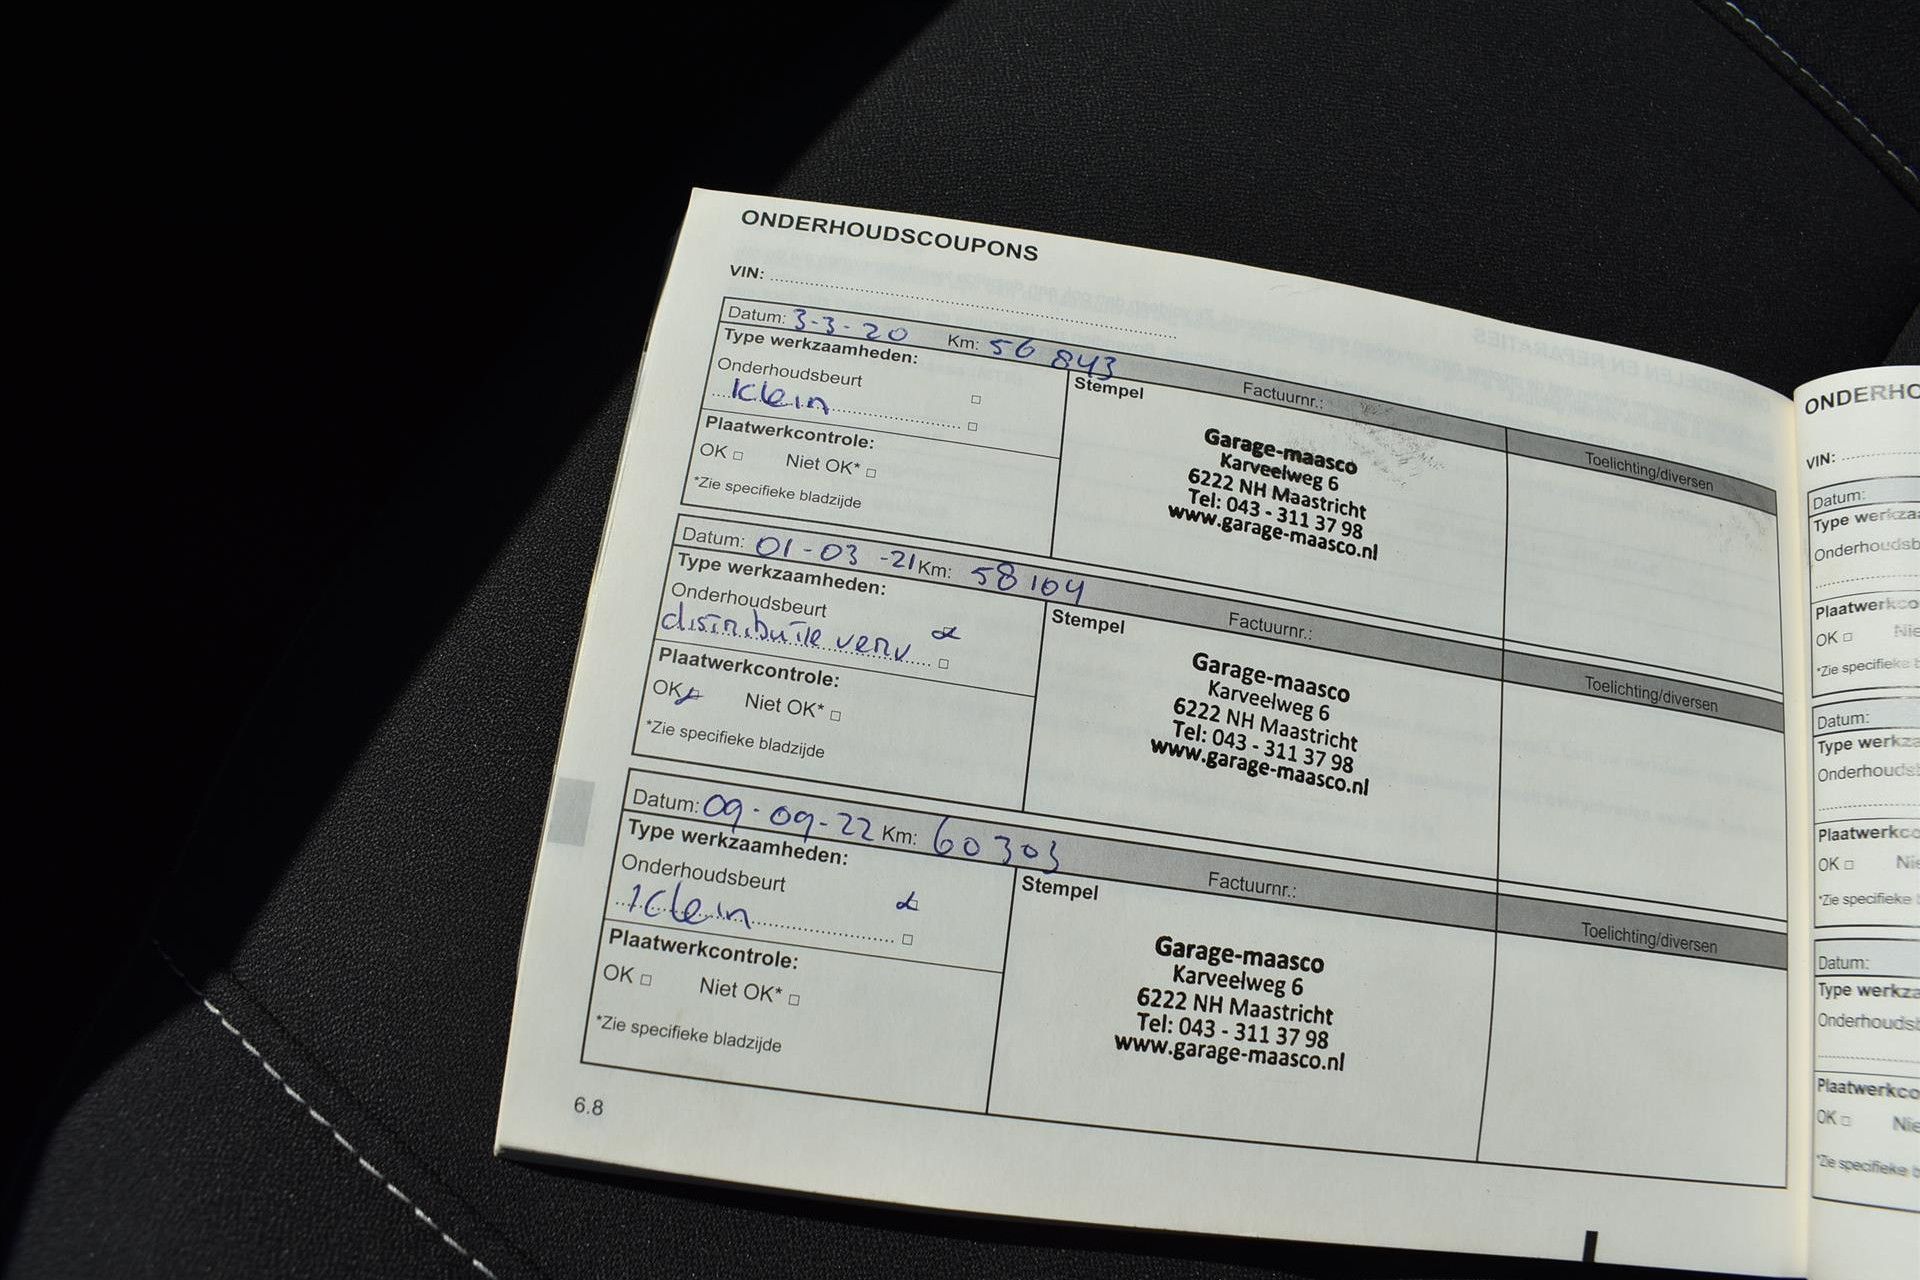 ONDERHOUDSCOUPONS
VIN:
Datum: 3-3-20 Km: 56 843
Type werkzaamheden:
Onderhoudsbeurt
Klein
Plaatwerkcontrole:
OK Niet OK*
*Zie specifieke bladzijde
Stempel Factuurnr.:
Garage-maasco
Karveelweg 6
6222 NH Maastricht
Tel: 043 - 311 37 98
www.garage-maasco.nl
Toelichting/diversen
Datum: 01-03-21 Km: 58104
Type werkzaamheden:
Onderhoudsbeurt
distributie verv
Plaatwerkcontrole:
OK Niet OK*
*Zie specifieke bladzijde
Stempel Factuurnr.:
Garage-maasco
Karveelweg 6
6222 NH Maastricht
Tel: 043 - 311 37 98
www.garage-maasco.nl
Toelichting/diversen
Datum: 09-09-22 Km: 60303
Type werkzaamheden:
Onderhoudsbeurt
Klein
Plaatwerkcontrole:
OK Niet OK*
*Zie specifieke bladzijde
Stempel Factuurnr.:
Garage-maasco
Karveelweg 6
6222 NH Maastricht
Tel: 043 - 311 37 98
www.garage-maasco.nl
Toelichting/diversen
6.8
ONDERHO
VIN:
Datum:
Type werkza
Onderhoudsb
Plaatwerkco
OK Nie
*Zie specifieke b
Datum:
Type werkza
Onderhoudsb
Plaatwerkco
OK Nie
*Zie specifieke
Datum:
Type werkza
Onderhoudsb
Plaatwerkco
OK Nie
*Zie specifieke b